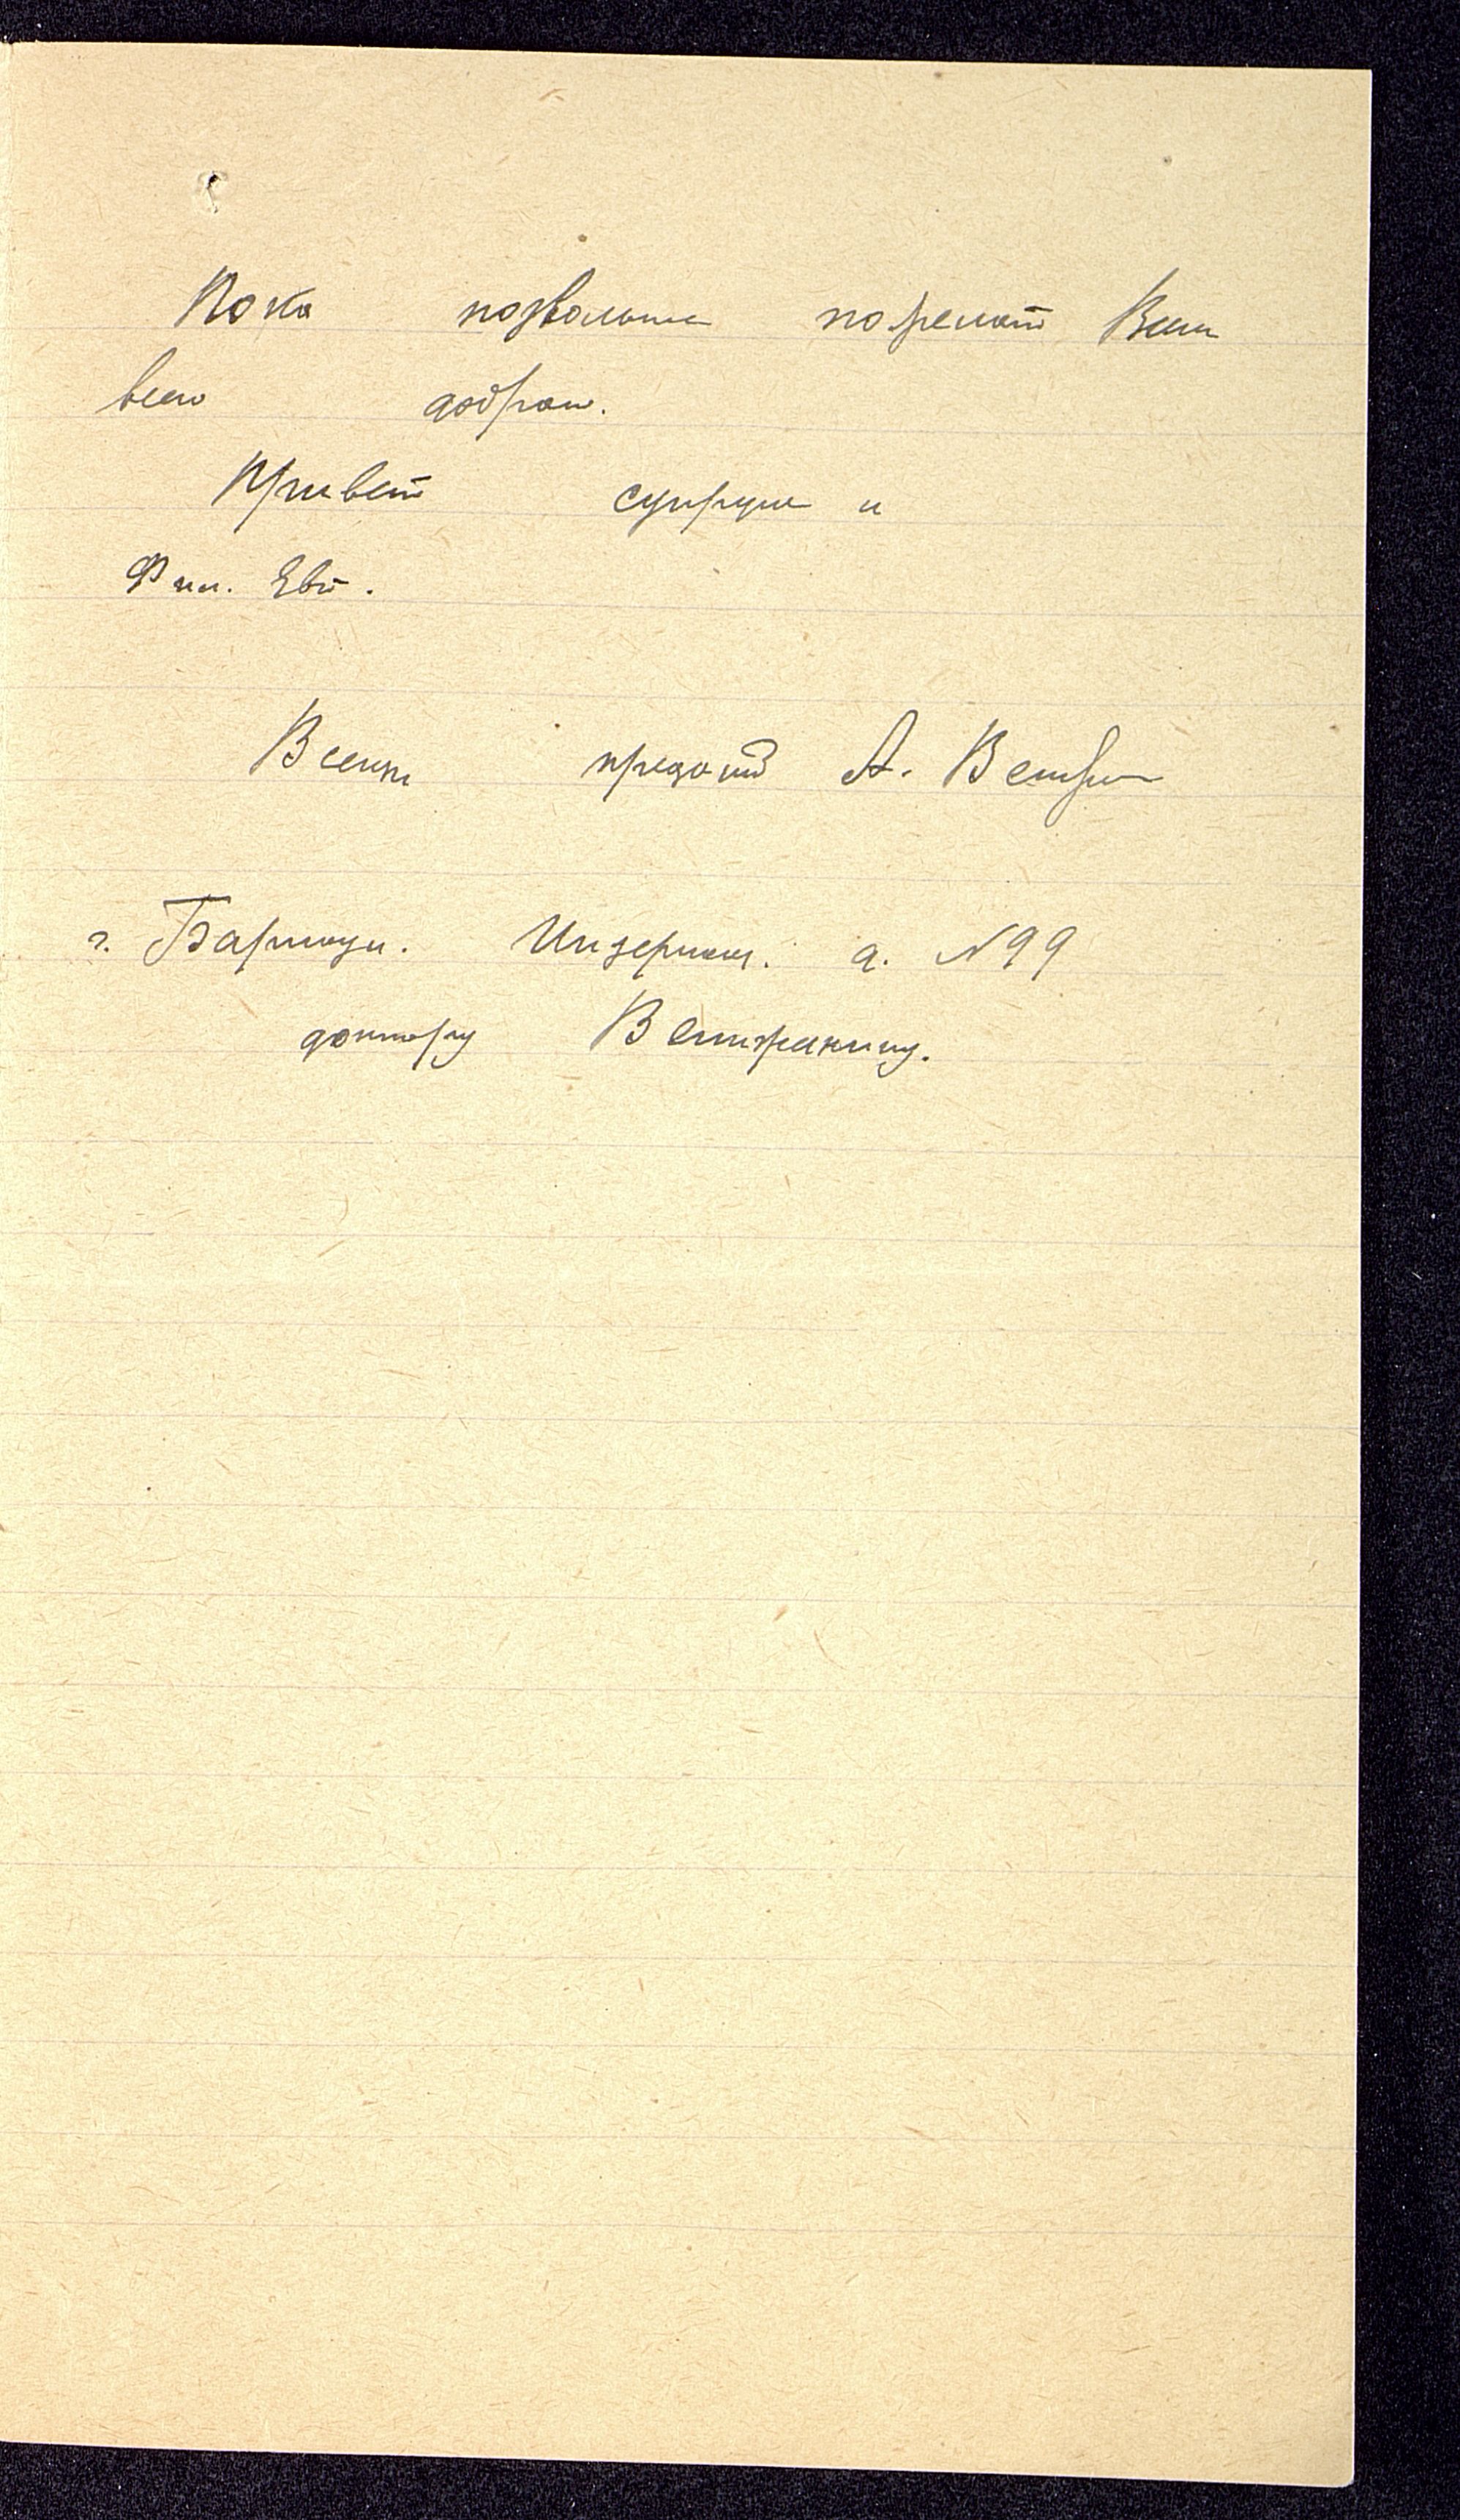 Пока позвольте пожелать Вам
всего доброго.
Привет супруге и
Фил. Евт.
Всегда преданный А. Ветр
г. Барнаул. Интернац. д. №99
доктору